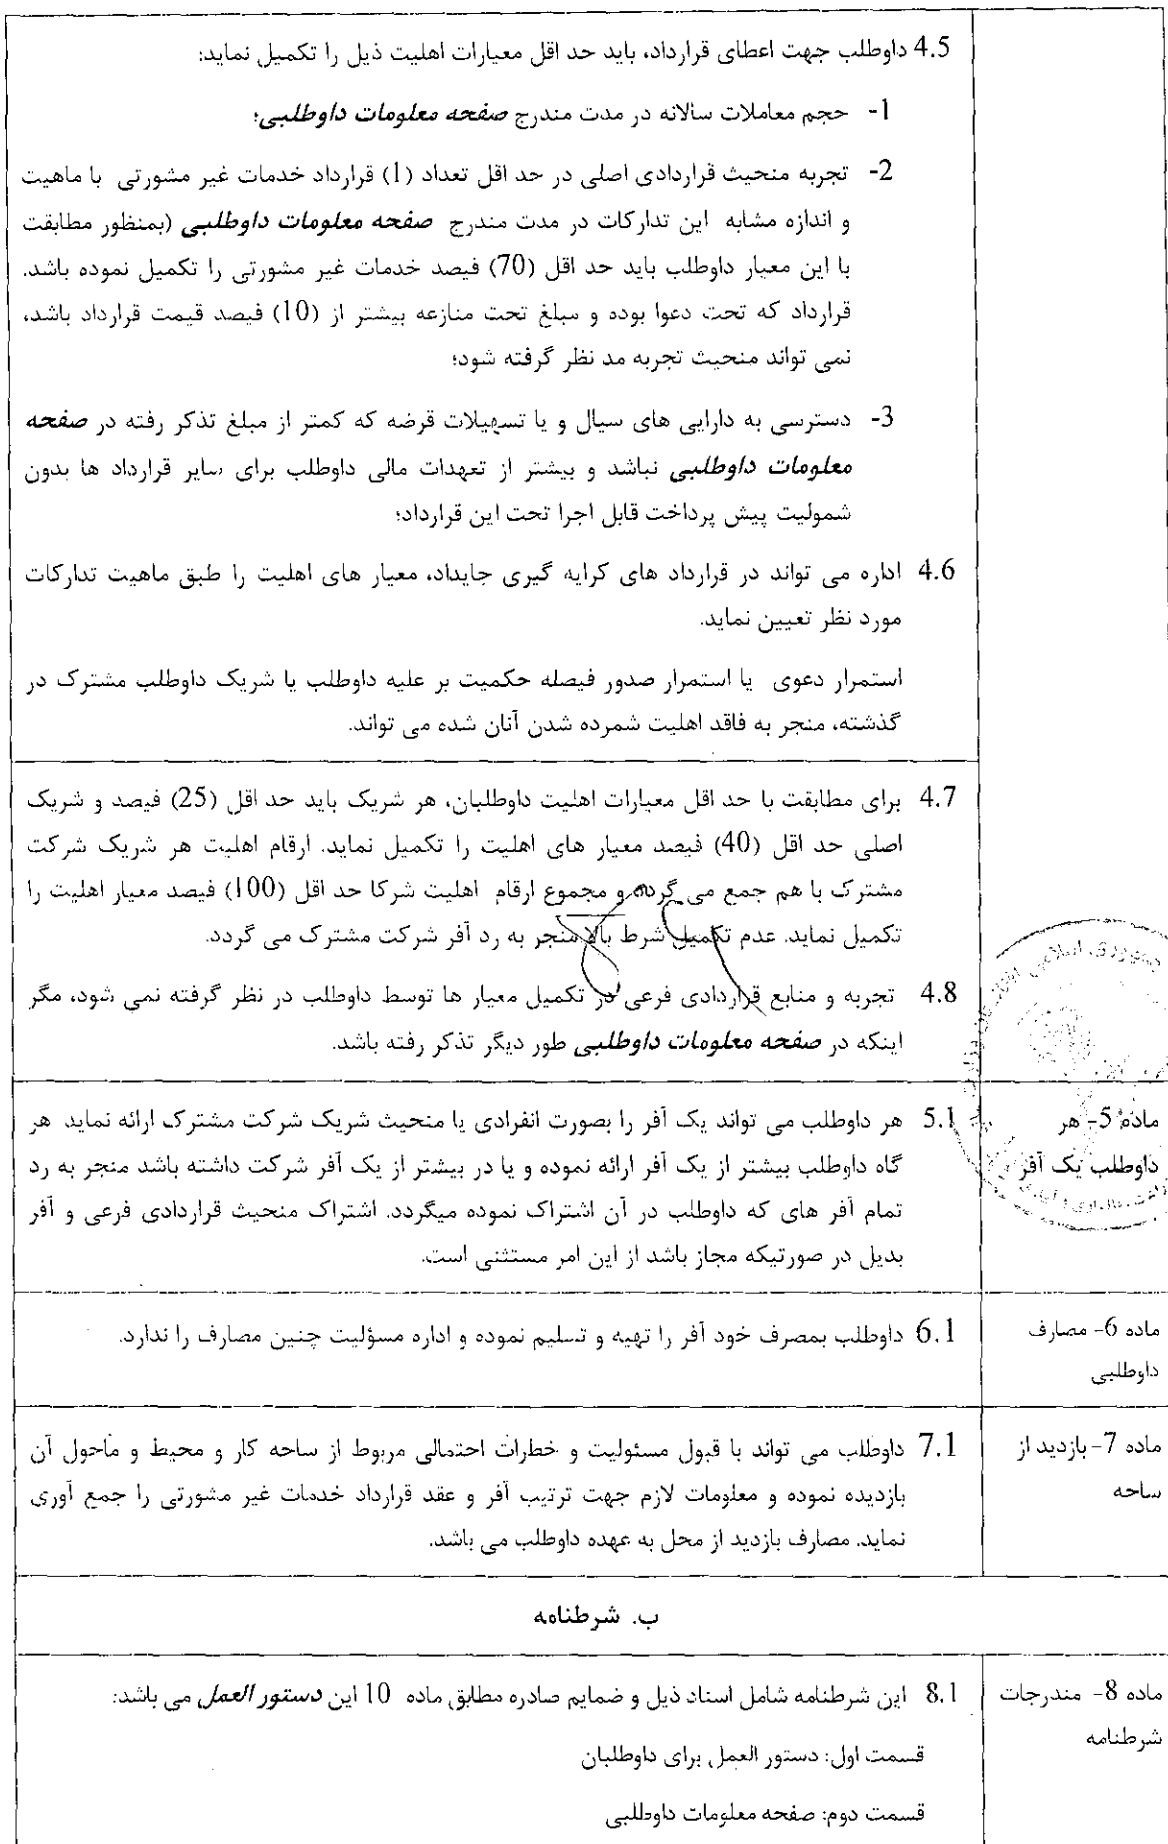 4.5 داوطلب جهت اعطای قرارداد، باید حد اقل معیارات اهلیت ذیل را تکمیل نماید:
1- حجم معاملات سالانه در مدت مندرج صفحه معلومات داوطلبی؛
2- تجربه منحیث قراردادی اصلی در حد اقل تعداد (1) قرارداد خدمات غیر مشورتی با ماهیت
و اندازه مشابه این تدارکات در مدت مندرج صفحه معلومات داوطلبی (بمنظور مطابقت
با این معیار داوطلب باید حد اقل (70) فیصد خدمات غیر مشورتی را تکمیل نموده باشد.
قرارداد که تحت دعوا بوده و مبلغ تحت منازعه بیشتر از (10) فیصد قیمت قرارداد باشد،
نمی تواند منحیث تجربه مد نظر گرفته شود؛
3- دسترسی به دارایی های سیال و یا تسهیلات قرضه که کمتر از مبلغ تذکر رفته در صفحه
معلومات داوطلبی نباشد و بیشتر از تعهدات مالی داوطلب برای سایر قرارداد ها بدون
شمولیت پیش پرداخت قابل اجرا تحت این قرارداد؛
4.6 اداره می تواند در قرارداد های کرایه گیری جایداد، معیار های اهلیت را طبق ماهیت تدارکات
مورد نظر تعیین نماید.
استمرار دعوی یا استمرار صدور فیصله حکمیت بر علیه داوطلب یا شریک داوطلب مشترک در
گذشته، منجر به فاقد اهلیت شمرده شدن آنان شده می تواند.
4.7 برای مطابقت با حد اقل معیارات اهلیت داوطلبان، هر شریک باید حد اقل (25) فیصد و شریک
اصلی حد اقل (40) فیصد معیار های اهلیت را تکمیل نماید. ارقام اهلیت هر شریک شرکت
مشترک با هم جمع می گردد و مجموع ارقام اهلیت شرکا حد اقل (100) فیصد معیار اهلیت را
تکمیل نماید. عدم تکمیل شرط بالا منجر به رد آفر شرکت مشترک می گردد.
4.8 تجربه و منابع قراردادی فرعی در تکمیل معیار ها توسط داوطلب در نظر گرفته نمی شود، مگر
اینکه در صفحه معلومات داوطلبی طور دیگر تذکر رفته باشد.
ماده 5- هر
داوطلب یک آفر
5.1 هر داوطلب می تواند یک آفر را بصورت انفرادی یا منحیث شریک شرکت مشترک ارائه نماید هر
گاه داوطلب بیشتر از یک آفر ارائه نموده و یا در بیشتر از یک آفر شرکت داشته باشد منجر به رد
تمام آفر های که داوطلب در آن اشتراک نموده میگردد. اشتراک منحیث قراردادی فرعی و آفر
بدیل در صورتیکه مجاز باشد از این امر مستثنی است.
ماده 6- مصارف
داوطلبی
6.1 داوطلب بمصرف خود آفر را تهیه و تسلیم نموده و اداره مسؤلیت چنین مصارف را ندارد.
ماده 7- بازدید از
ساحه
7.1 داوطلب می تواند با قبول مسئولیت و خطرات احتمالی مربوط از ساحه کار و محیط و ماحول آن
بازدیده نموده و معلومات لازم جهت ترتیب آفر و عقد قرارداد خدمات غیر مشورتی را جمع آوری
نماید. مصارف بازدید از محل به عهده داوطلب می باشد.
ب. شرطنامه
ماده 8- مندرجات
شرطنامه
8.1 این شرطنامه شامل اسناد ذیل و ضمایم صادره مطابق ماده 10 این دستور العمل می باشد:
قسمت اول: دستور العمل برای داوطلبان
قسمت دوم: صفحه معلومات داوطلبی